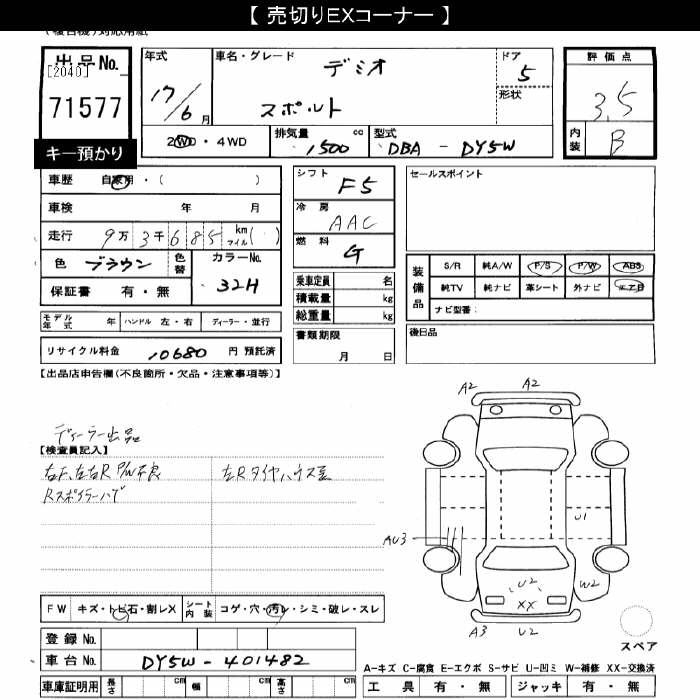 【 売切りEXコーナー 】
(複合機)対応用紙
出品No.
[2040]
71577
キー預かり
年式
17/6 月
車名・グレード
デミオ
スポルト
ドア
5
形状
評価点
3.5
内装
B
2WD・4WD
排気量 1500 cc
型式 DBA - DY5W
車歴 自家用・( )
車検 年 月
走行 9万3千685 km マイル( )
色 ブラウン 色替
カラーNo. 32H
保証書 有・無
モデル年式 年 ハンドル 左・右 ディーラー・並行
リサイクル料金 10680 円 預託済
シフト F5
冷房 AAC
燃料 G
乗車定員 名
積載量 kg
総重量 kg
書類期限
月 日
セールスポイント
装備品
S/R 純A/W P/S P/W ABS
純TV 純ナビ 革シート 外ナビ エアB
ナビ型番:
後日品
【出品店申告欄(不良箇所・欠品・注意事項等)】
ディーラー出品
【検査員記入】
右F、左右R P/W不良
左Rタイヤハウス歪
Rスポイラーハゲ
A2
A2
U1
AU3
U2
XX
W2
A3
U2
スペア
FW キズ・トビ石・割レX シート内装 コゲ・穴・汚レ・シミ・破レ・スレ
登録No.
車台No. DY5W-401482
車庫証明用 長さ cm 幅 cm 高さ cm
A-キズ C-腐食 E-エクボ S-サビ U-凹ミ W-補修 XX-交換済
工具 有・無 ジャッキ 有・無